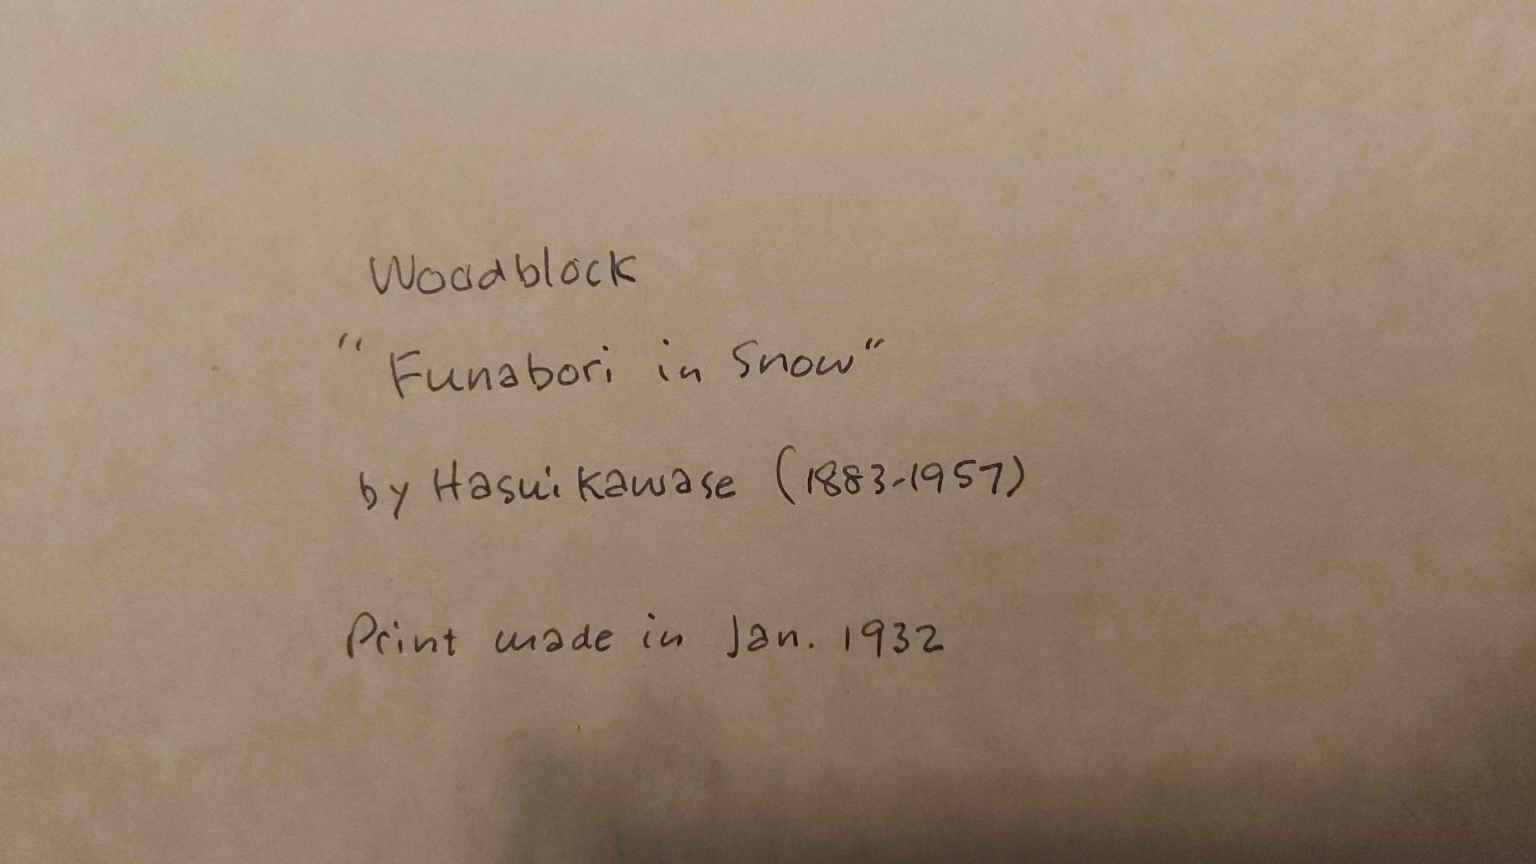 Woodblock
"Funabori in Snow"
by Hasui Kawase (1883-1957)
Print made in Jan. 1932